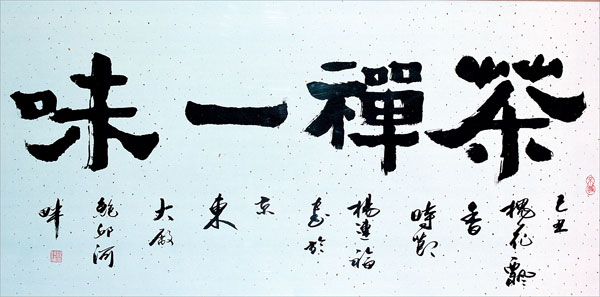 茶禪一味
己丑
槐花飄
香
時節
楊連福
書於
京
東
大廠
鮑邱河
畔